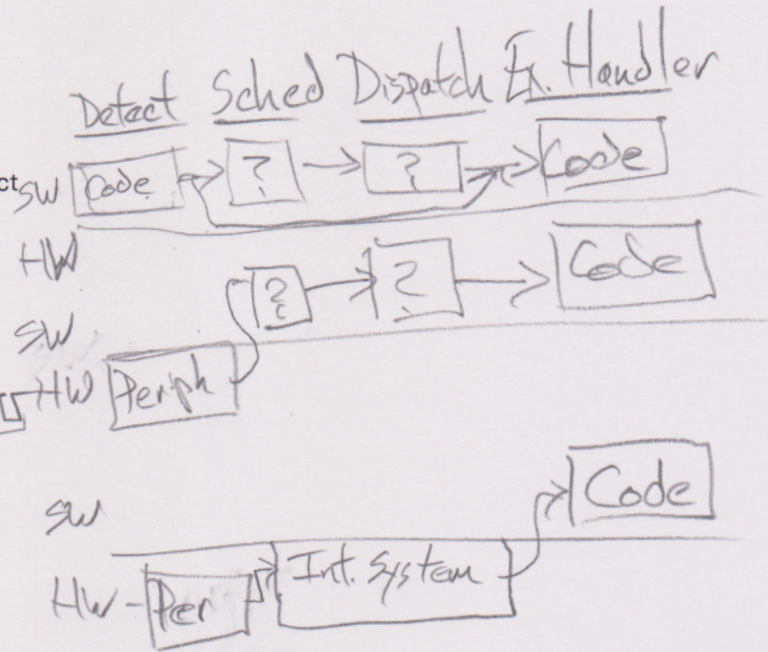 Detect Sched Dispatch Ex. Handler
ct
SW Code ? ? Code
HW
? ? Code
SW
HW Periph
Code
SW
Int. System
HW Per